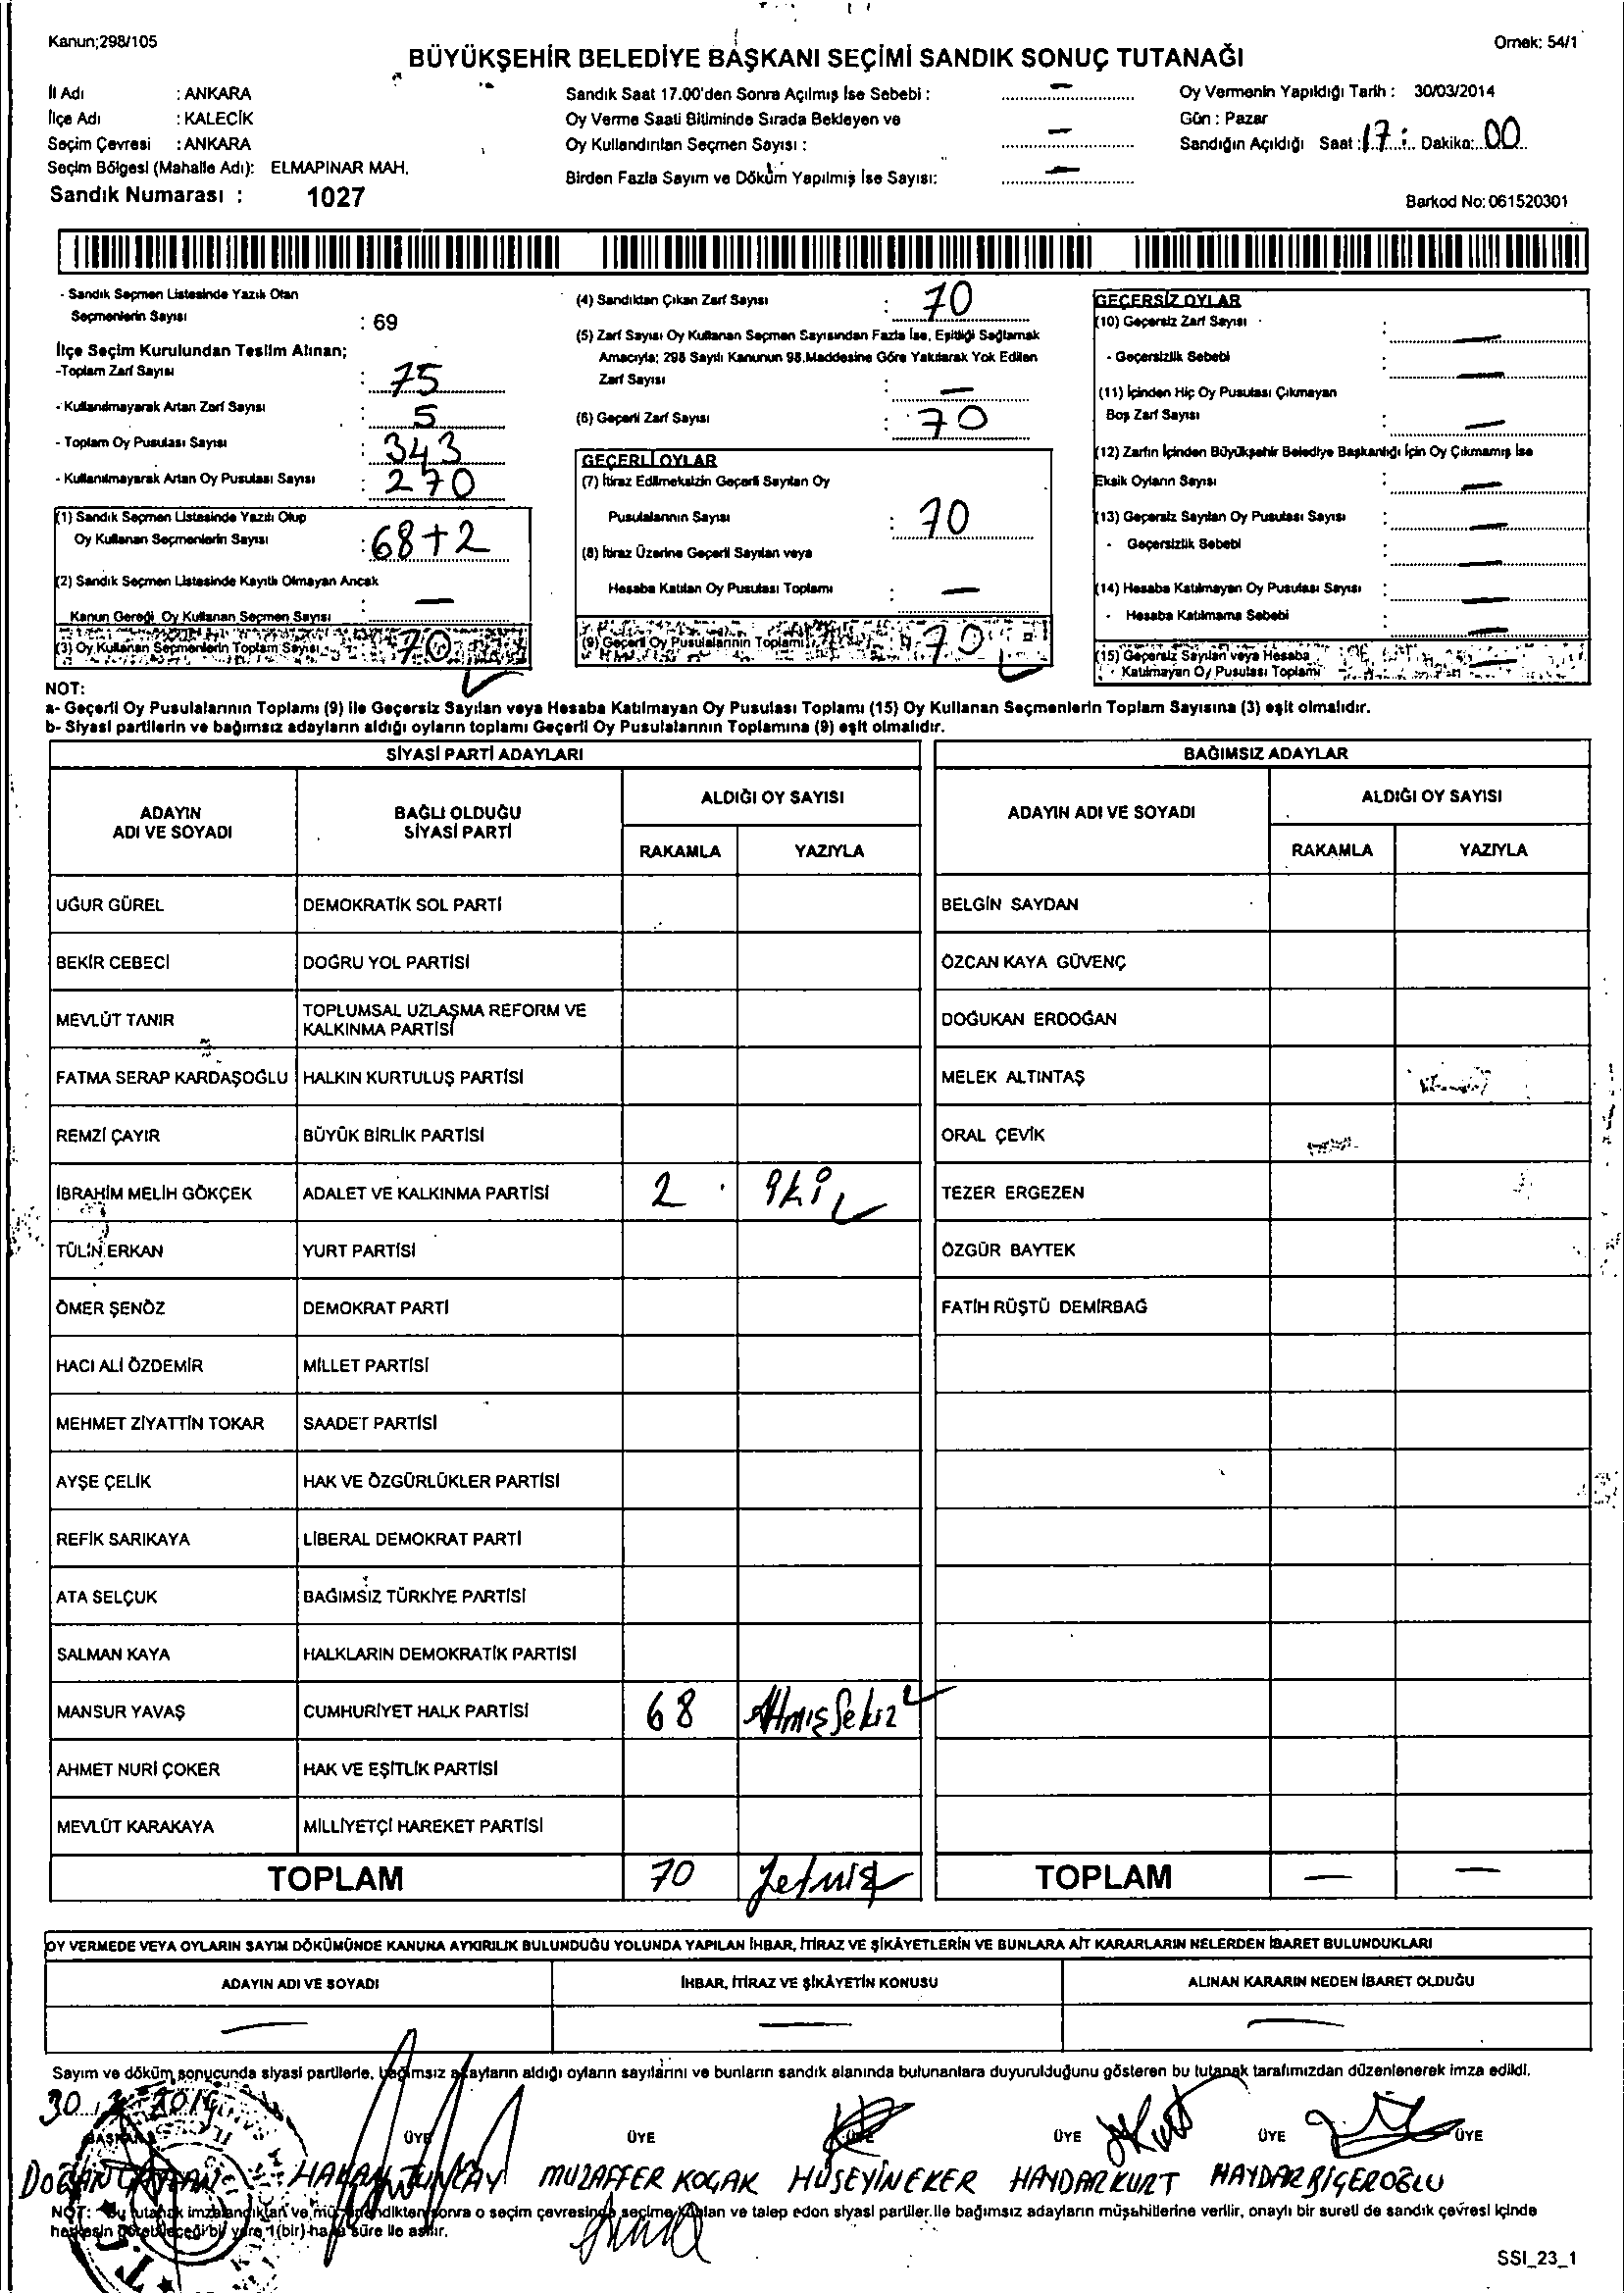 Kanun;298/105
Örnek: 54/1
BÜYÜKŞEHİR BELEDİYE BAŞKANI SEÇİMİ SANDIK SONUÇ TUTANAĞI
İl Adı : ANKARA
İlçe Adı : KALECİK
Seçim Çevresi : ANKARA
Seçim Bölgesi (Mahalle Adı): ELMAPINAR MAH.
Sandık Numarası : 1027
Sandık Saat 17.00'den Sonra Açılmış İse Sebebi : —
Oy Verme Saati Bitiminde Sırada Bekleyen ve
Oy Kullandırılan Seçmen Sayısı : —
Birden Fazla Sayım ve Döküm Yapılmış İse Sayısı: —
Oy Vermenin Yapıldığı Tarih : 30/03/2014
Gün : Pazar
Sandığın Açıldığı Saat : 17 : Dakika: 00
Barkod No: 061520301
- Sandık Seçmen Listesinde Yazılı Olan
Seçmenlerin Sayısı : 69
İlçe Seçim Kurulundan Teslim Alınan;
-Toplam Zarf Sayısı : 75
- Kullanılmayarak Artan Zarf Sayısı : 5
- Toplam Oy Pusulası Sayısı : 343
- Kullanılmayarak Artan Oy Pusulası Sayısı : 270
(1) Sandık Seçmen Listesinde Yazılı Olup
Oy Kullanan Seçmenlerin Sayısı : 68+2
(2) Sandık Seçmen Listesinde Kayıtlı Olmayan Ancak
Kanun Gereği Oy Kullanan Seçmen Sayısı : —
(3) Oy Kullanan Seçmenlerin Toplam Sayısı : 70
(4) Sandıktan Çıkan Zarf Sayısı : 70
(5) Zarf Sayısı Oy Kullanan Seçmen Sayısından Fazla İse, Eşitliği Sağlamak
Amacıyla; 298 Sayılı Kanunun 98.Maddesine Göre Yakılarak Yok Edilen
Zarf Sayısı : —
(6) Geçerli Zarf Sayısı : 70
GEÇERLİ OYLAR
(7) İtiraz Edilmeksizin Geçerli Sayılan Oy
Pusulalarının Sayısı : 70
(8) İtiraz Üzerine Geçerli Sayılan veya
Hesaba Katılan Oy Pusulası Toplamı : —
(9) Geçerli Oy Pusulalarının Toplamı 70
GEÇERSİZ OYLAR
(10) Geçersiz Zarf Sayısı : —
- Geçersizlik Sebebi : —
(11) İçinden Hiç Oy Pusulası Çıkmayan
Boş Zarf Sayısı : —
(12) Zarfın İçinden Büyükşehir Belediye Başkanlığı İçin Oy Çıkmamış İse
Eksik Oyların Sayısı : —
(13) Geçersiz Sayılan Oy Pusulası Sayısı : —
- Geçersizlik Sebebi : —
(14) Hesaba Katılmayan Oy Pusulası Sayısı : —
- Hesaba Katılmama Sebebi : —
(15) Geçersiz Sayılan veya Hesaba
Katılmayan Oy Pusulası Toplamı —
NOT:
a- Geçerli Oy Pusulalarının Toplamı (9) ile Geçersiz Sayılan veya Hesaba Katılmayan Oy Pusulası Toplamı (15) Oy Kullanan Seçmenlerin Toplam Sayısına (3) eşit olmalıdır.
b- Siyasi partilerin ve bağımsız adayların aldığı oyların toplamı Geçerli Oy Pusulalarının Toplamına (9) eşit olmalıdır.
SİYASİ PARTİ ADAYLARI
ADAYIN ADI VE SOYADI
BAĞLI OLDUĞU SİYASİ PARTİ
ALDIĞI OY SAYISI
RAKAMLA YAZIYLA
UĞUR GÜREL DEMOKRATİK SOL PARTİ
BEKİR CEBECİ DOĞRU YOL PARTİSİ
MEVLÜT TANIR TOPLUMSAL UZLAŞMA REFORM VE
KALKINMA PARTİSİ
FATMA SERAP KARDAŞOĞLU HALKIN KURTULUŞ PARTİSİ
REMZİ ÇAYIR BÜYÜK BİRLİK PARTİSİ
İBRAHİM MELİH GÖKÇEK ADALET VE KALKINMA PARTİSİ 2 İki
TÜLİN ERKAN YURT PARTİSİ
ÖMER ŞENÖZ DEMOKRAT PARTİ
HACI ALİ ÖZDEMİR MİLLET PARTİSİ
MEHMET ZİYATTİN TOKAR SAADET PARTİSİ
AYŞE ÇELİK HAK VE ÖZGÜRLÜKLER PARTİSİ
REFİK SARIKAYA LİBERAL DEMOKRAT PARTİ
ATA SELÇUK BAĞIMSIZ TÜRKİYE PARTİSİ
SALMAN KAYA HALKLARIN DEMOKRATİK PARTİSİ
MANSUR YAVAŞ CUMHURİYET HALK PARTİSİ 68 Altmışsekiz
AHMET NURİ ÇOKER HAK VE EŞİTLİK PARTİSİ
MEVLÜT KARAKAYA MİLLİYETÇİ HAREKET PARTİSİ
TOPLAM 70 Yetmiş
BAĞIMSIZ ADAYLAR
ADAYIN ADI VE SOYADI
ALDIĞI OY SAYISI
RAKAMLA YAZIYLA
BELGİN SAYDAN
ÖZCAN KAYA GÜVENÇ
DOĞUKAN ERDOĞAN
MELEK ALTINTAŞ
ORAL ÇEVİK
TEZER ERGEZEN
ÖZGÜR BAYTEK
FATİH RÜŞTÜ DEMİRBAĞ
TOPLAM — —
OY VERMEDE VEYA OYLARIN SAYIM DÖKÜMÜNDE KANUNA AYKIRILIK BULUNDUĞU YOLUNDA YAPILAN İHBAR, İTİRAZ VE ŞİKÂYETLERİN VE BUNLARA AİT KARARLARIN NELERDEN İBARET BULUNDUKLARI
ADAYIN ADI VE SOYADI İHBAR, İTİRAZ VE ŞİKÂYETİN KONUSU ALINAN KARARIN NEDEN İBARET OLDUĞU
— — —
Sayım ve döküm sonucunda siyasi partilerle, bağımsız adayların aldığı oyların sayılarını ve bunların sandık alanında bulunanlara duyurulduğunu gösteren bu tutanak tarafımızdan düzenlenerek imza edildi.
30.3.2014
BAŞKAN ÜYE ÜYE ÜYE ÜYE ÜYE ÜYE
DOĞAN HAKAN TUNCAY MUZAFFER KOÇAK HÜSEYİN EKER HAYDAR KURT HAYDAR BİÇEROĞLU
NOT: Bu tutanak imzalandıktan ve mühürlendikten sonra o seçim çevresinde seçime katılan ve talep eden siyasi partiler ile bağımsız adayların müşahitlerine verilir, onaylı bir sureti de sandık çevresi içinde
herkesin görebileceği bir yere 1(bir) hafta süre ile asılır.
SSI_23_1